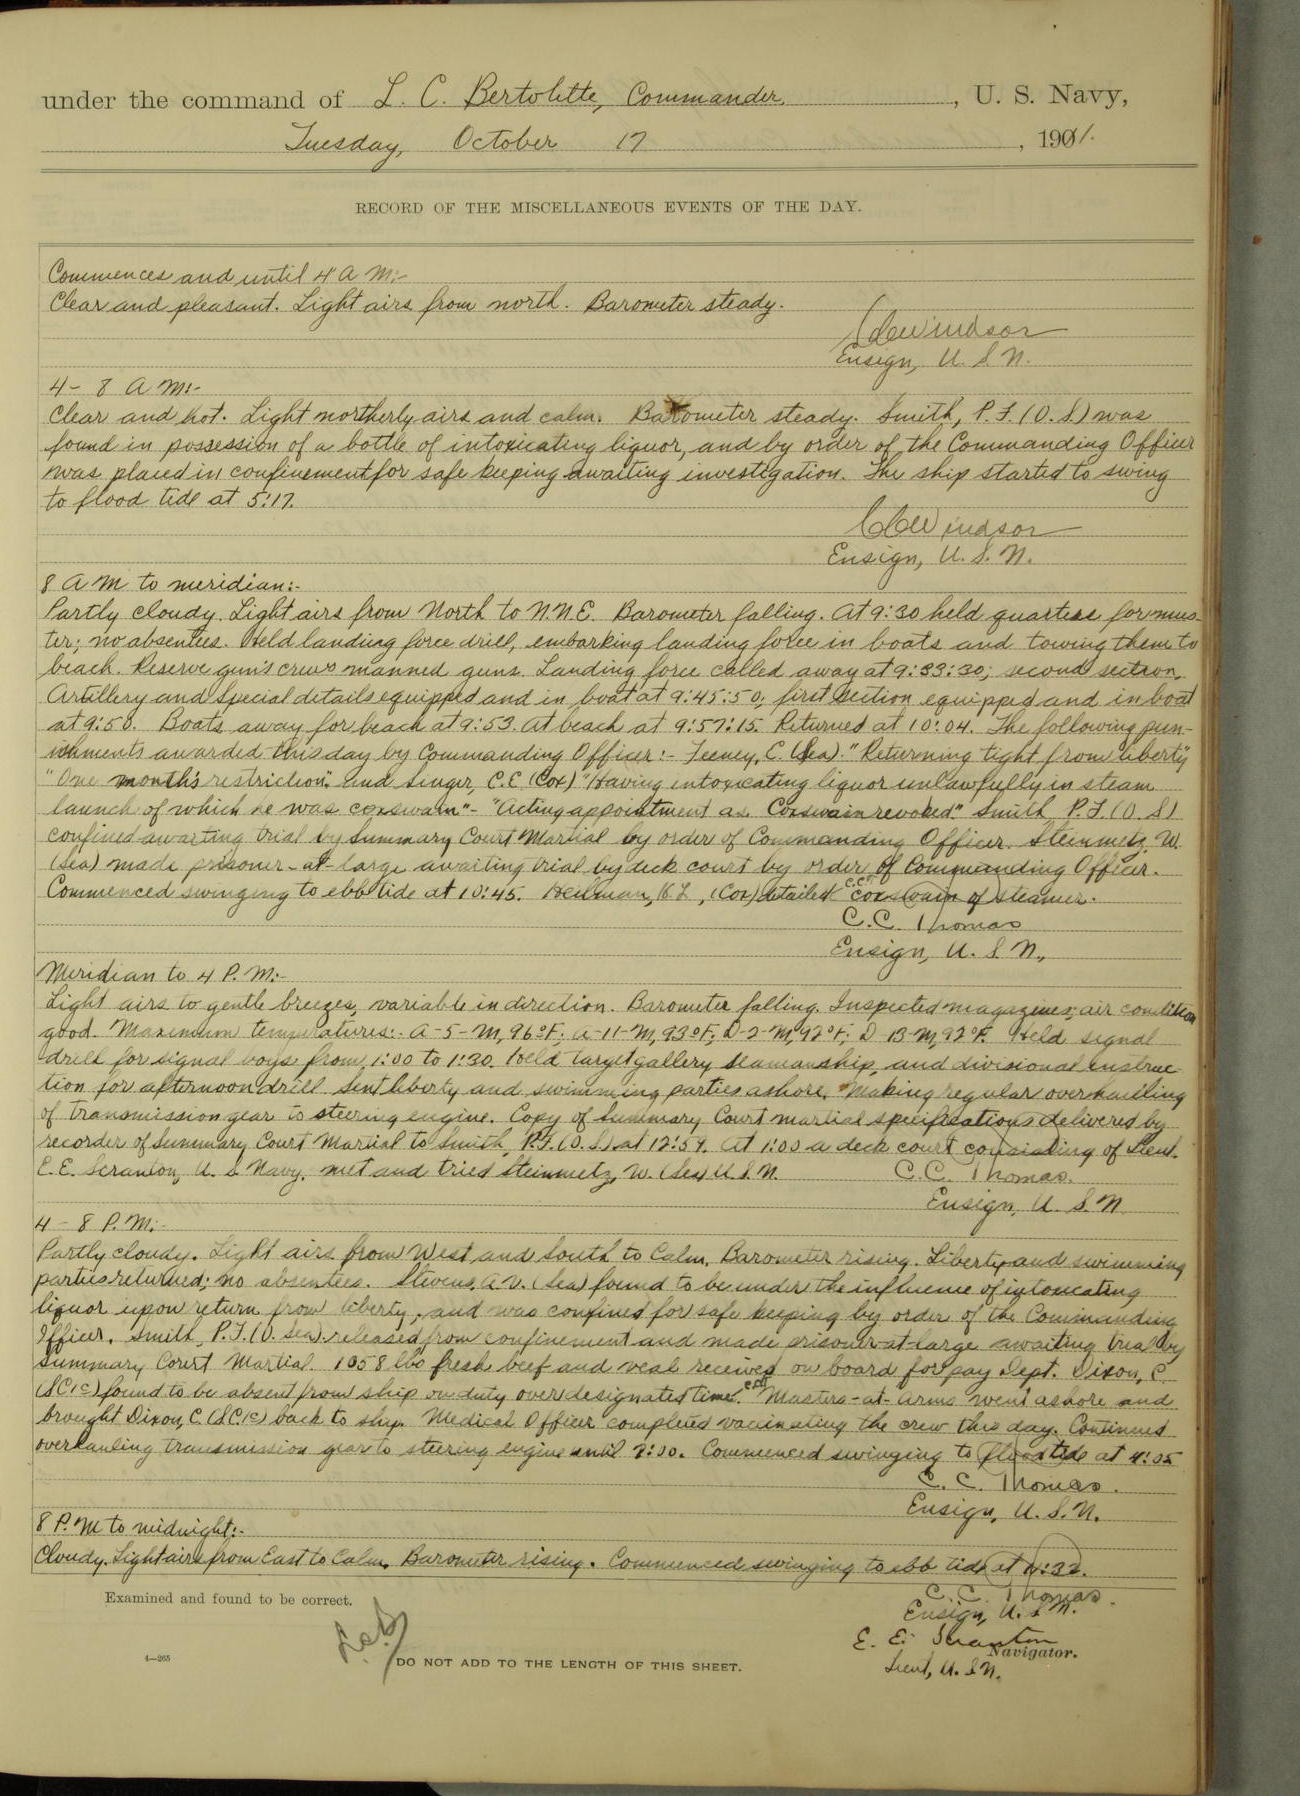 under the command of L. C. Bertolette, Commander, U. S. Navy,
Tuesday, October 17, 191
RECORD OF THE MISCELLANEOUS EVENTS OF THE DAY.
Commences and until 4 A M:-
Clear and pleasant. Light airs from north. Barometer steady.
Windsor
Ensign, U. S. N.
4 - 8 A M:-
Clear and hot. Light northerly airs and calm. Barometer steady. Smith, P. F. (O. S.) was
found in possession of a bottle of intoxicating liquor, and by order of the Commanding Officer
was placed in confinement for safe keeping awaiting investigation. The ship started to swing
to flood tide at 5:17.
Windsor
Ensign, U. S. N.
8 A M to meridian:-
Partly cloudy. Light airs from North to N.N.E. Barometer falling. At 9:30 held quarters for mus-
ter; no absentees. Held landing force drill, embarking landing force in boats and towing them to
beach. Reserve gun's crews manned guns. Landing force called away at 9:33:30; second section,
Artillery and special details equipped and in boat at 9:45:50; first section equipped and in boat
at 9:50. Boats away for beach at 9:53. At beach at 9:57:15. Returned at 10:04. The following pun-
ishments awarded this day by Commanding Officer:- Feeney, C. (Sea). "Returning tight from liberty"
"One month's restriction". And Singer, C.E. (Cox) "Having intoxicating liquor unlawfully in steam
launch of which he was coxswain" - "Acting appointment as Coxswain revoked". Smith P. F. (O. S)
confined awaiting trial by Summary Court Martial by order of Commanding Officer. Steinmetz, W.
(Sea) made prisoner-at-large awaiting trial by deck court by order of Commanding Officer.
Commenced swinging to ebb tide at 10:45. (Cox) detailed coxswain of steamer.
C. C. Thomas
Ensign, U. S. N.,
Meridian to 4 P. M:-
Light airs to gentle breezes, variable in direction. Barometer falling. Inspected magazines; air condition
good. Maximum temperatures:- A-5-M, 96°F; A-11-M, 93°F; D-2-M, 92°F; D-13-M, 92°F. Held signal
drill for signal boys from 1:00 to 1:30. Held target gallery, seamanship, and divisional instruc-
tion for afternoon drill. Sent liberty and swimming parties ashore. Making regular overhauling
of transmission gear to steering engine. Copy of Summary Court martial specifications delivered by
recorder of Summary Court Martial to Smith, P. F. (O. S.) at 12:59. At 1:00 a deck court consisting of Lieut.
E. E. Scranton, U. S. Navy, met and tried Steinmetz, W. (Sea) U.S.N.
C. C. Thomas.
Ensign, U. S. N.
4 - 8 P. M:-
Partly cloudy. Light airs from West and South to Calm. Barometer rising. Liberty and swimming
parties returned; no absentees. Stevens, A. V. (Sea) found to be under the influence of intoxicating
liquor upon return from liberty, and was confined for safe keeping by order of the Commanding
Officer. Smith, P. F. (O. Sea) released from confinement and made prisoner-at-large awaiting trial by
Summary Court Martial. 1058 lbs fresh beef and veal received on board for pay Dept. Dixon, C.
(SC1c) found to be absent from ship on duty over designated time. Masters-at-arms went ashore and
brought Dixon, C. (S.C.1c) back to ship. Medical Officer completed vaccinating the crew this day. Continued
overhauling transmission gear to steering engine until Commenced swinging to flood tide at 4:05
C. C. Thomas.
Ensign, U. S. N.
8 P. M to midnight:-
Cloudy. Light airs from East to Calm. Barometer rising. Commenced swinging to ebb tide at
C. C. Thomas.
Ensign, U. S. N.
Examined and found to be correct.
L.C.B.
E. E. Scranton
Lieut, U. S. N. Navigator.
4—265
DO NOT ADD TO THE LENGTH OF THIS SHEET.